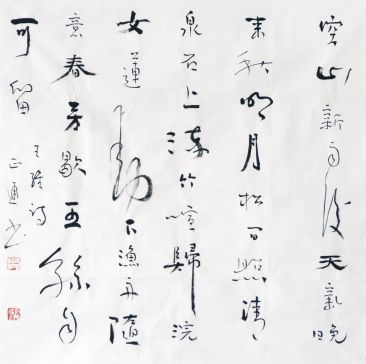 空山新雨後天氣晚
來秋明月松間照清
泉石上流竹喧歸浣
女蓮動下漁舟隨
意春芳歇王孫自
可留
王維詩